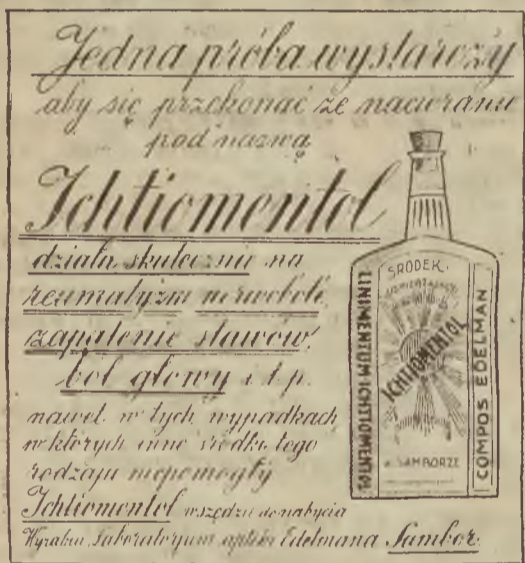 Jedna próba wystarczy
aby się przekonać że nacieranie
pod nazwą
Ichtiomentol
działa skutecznie na
reumatyzm nerwobole
zapalenie stawów,
ból głowy i t.p.
nawet w tych wypadkach
w których inne środki tego
rodzaju niepomogły
Ichtiomentol wszędzie do nabycia
Wyrabia Laboratoryum apteki Edelmana Sambor.
ŚRODEK
LINIMENTUM ICHTIOMENTOL
ICHTIOMENTOL
SAMBORZE
COMPOS EDELMAN